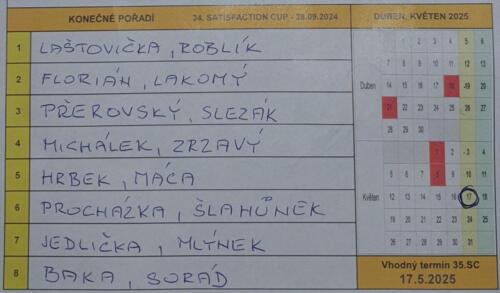 KONEČNÉ POŘADÍ
34. SATISFACTION CUP - 28.09.2024
1 LAŠTOVIČKA, ROBLÍK
2 FLORIÁN, LAKOMÝ
3 PŘEROVSKÝ, SLEZÁK
4 MICHÁLEK, ZRZAVÝ
5 HRBEK, MÁCA
6 PROCHÁZKA, ŠLAHŮNEK
7 JEDLIČKA, MLÝNEK
8 BAKA, SORÁD
DUBEN, KVĚTEN 2025
1 2 3 4 5 6
7 8 9 10 11 12 13
Duben 14 15 16 17 18 19 20
21 22 23 24 25 26 27
28 29 30
1 2 3 4
5 6 7 8 9 10 11
Květen 12 13 14 15 16 17 18
19 20 21 22 23 24 25
26 27 28 29 30 31
Vhodný termín 35.SC
17.5.2025